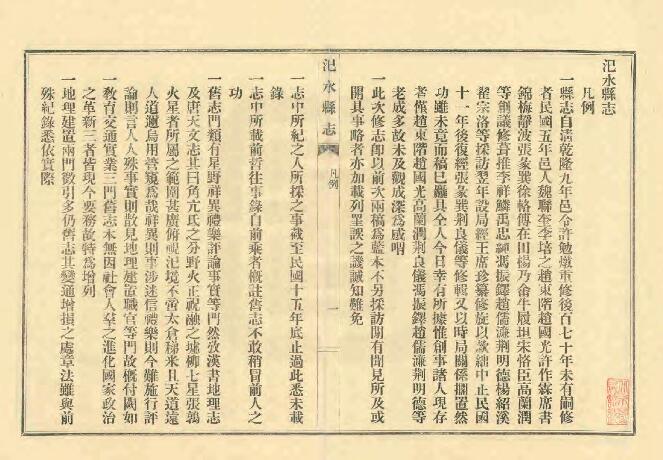 汜水縣志
凡例
一縣志自清乾隆九年邑令許勉燉重修後百七十年未有嗣修
者民國五年邑人魏聯奎李培之趙東階趙國光許作霖席書
錦梅靜波張彖巽徐輅傅在田楊乃畬牛履垣朱恪臣高蘭潤
等創議修葺推李祥麟禹忠純馮振鐸趙儒濂荆明德楊紹溪
翟宗洛等採訪翌年設局經王席珍纂修旋以欵絀中止民國
十一年後復經張彖巽荆良儀等修輯又以時局關係擱置然
功雖未竟而稿巳雖具全人今日幸有所據惟創事諸人現存
者僅趙東階趙國光高蘭潤荆良儀馮振鐸趙儒濂荆明德等
老成多故未及觀成深爲感喟
一此次修志卽以前次兩稿爲藍本不另採訪閒有聞見所及或
開具事略者亦加載列罣誤之譏誠知難免
一志中所紀之人所採之事截至民國十五年底止過此悉未載
錄
一志中所載前哲往事錄自前乘者槪註舊志不敢稍冒前人之
功
一舊志門類有星野祥異禮樂評論事實等門然攷漢書地理志
及唐天文志其曰角亢氐之分野火正祝融之墟柳七星張鶉
火星者所屬之範圍甚廣俯視汜境不啻太倉稊米且天道遠
人道邇烏用管窺爲哉祥異則事涉迷信禮樂則今難施行評
論則言人人殊事實則散見地理建置職官等門故槪付闕如
一敎育交通實業三門舊志本無因社會人羣之進化國家政治
之革新三者皆現今要務故特爲增列
一地理建置兩門徵引多仍舊志其變通增損之處章法雖與前
殊紀錄悉依實際
汜水縣志
凡例
一